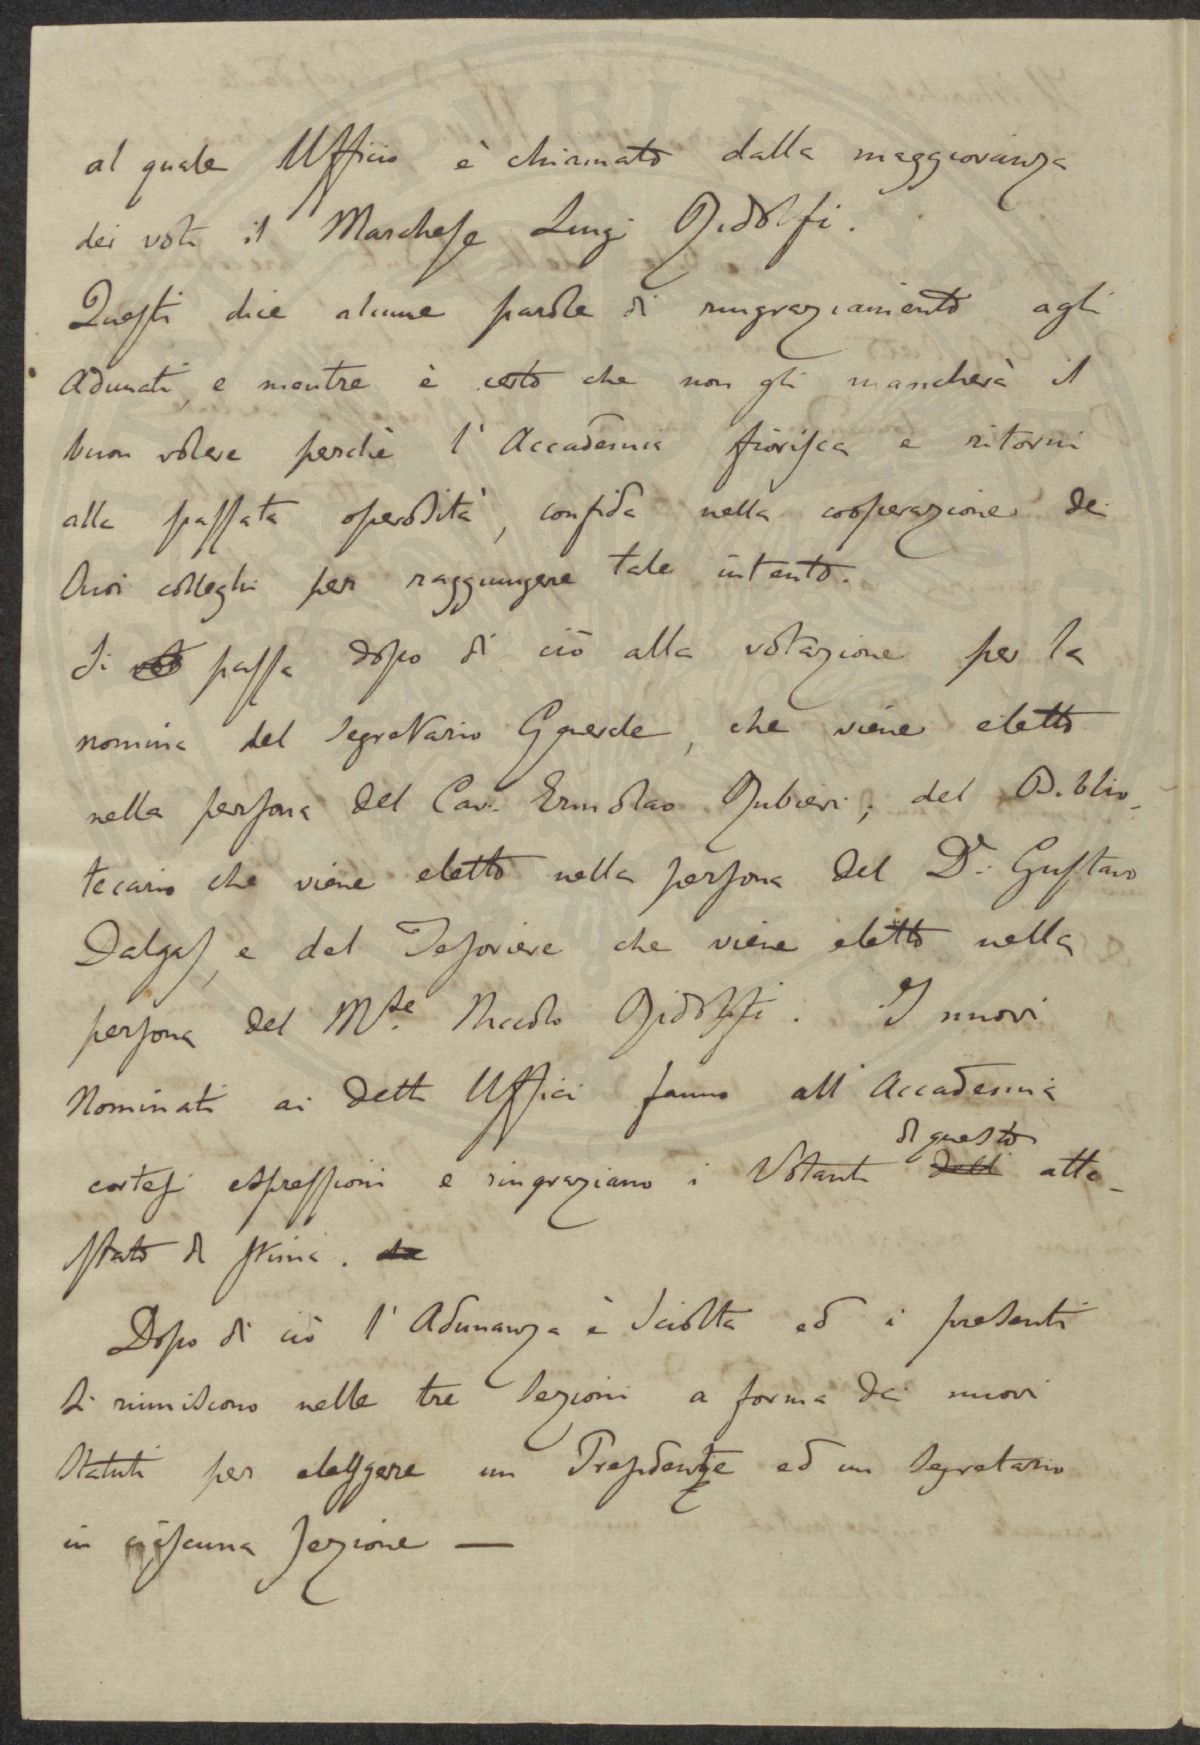 al quale Ufficio è chiamato dalla maggioranza
dei voti il Marchese Luigi Ridolfi.
Questi dice alcune parole di ringraziamento agli
Adunati, e mentre è certo che non gli mancherà il
buon volere perchè l'Accademia fiorisca e ritorni
alla passata operosità, confida nella cooperazione dei
suoi colleghi per raggiungere tale intento.
Si passa dopo di ciò alla votazione per la
nomina del Segretario Gñerale, che viene eletto
nella persona del Cav. Ermolao Rubieri; del Biblio-
tecario che viene eletto nella persona del Dr. Gustavo
Dalgas, e del Tesoriere che viene eletto nella
persona del Mse. Niccolò Ridolfi. I nuovi
Nominati ai detti Uffici fanno all'Accademia
cortesi espressioni e ringraziano i Votanti di questo atte-
stato di stima.
Dopo di ciò l'Adunanza è sciolta ed i presenti
si riuniscono nelle tre Sezioni a forma dei nuovi
Statuti per eleggere un Presidente ed un Segretario
in ciascuna Sezione —